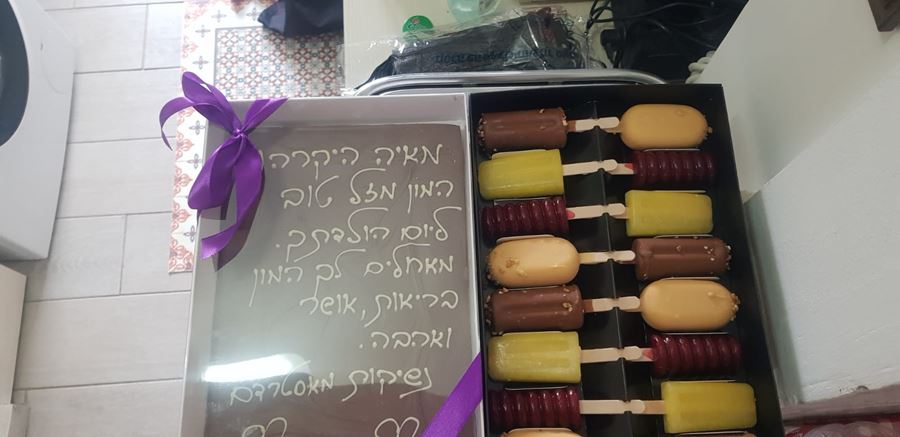 מאיה היקרה
המון מזל טוב
ליום הולדתך.
מאחלים לך המון
בריאות, אושר
ואהבה.
נשיקות מאמסטרדם